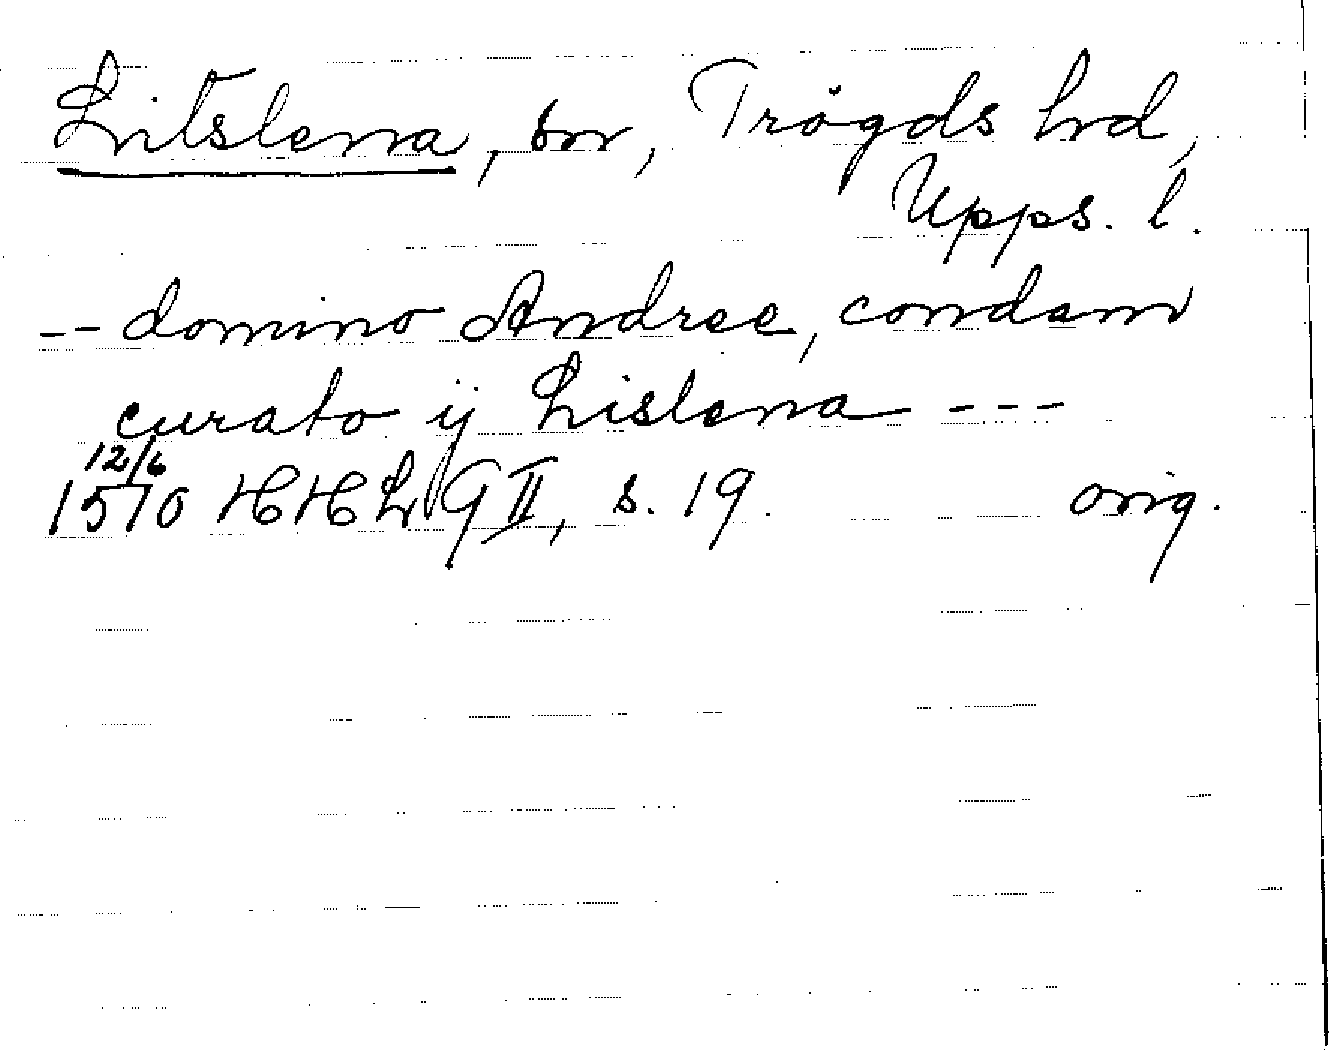 Litslena, sn, Trögds hrd,
Upps. l.
-- domino Andree, condam
curato ij Lislena ---
12/6
1510 HHLG II, s. 19. orig.